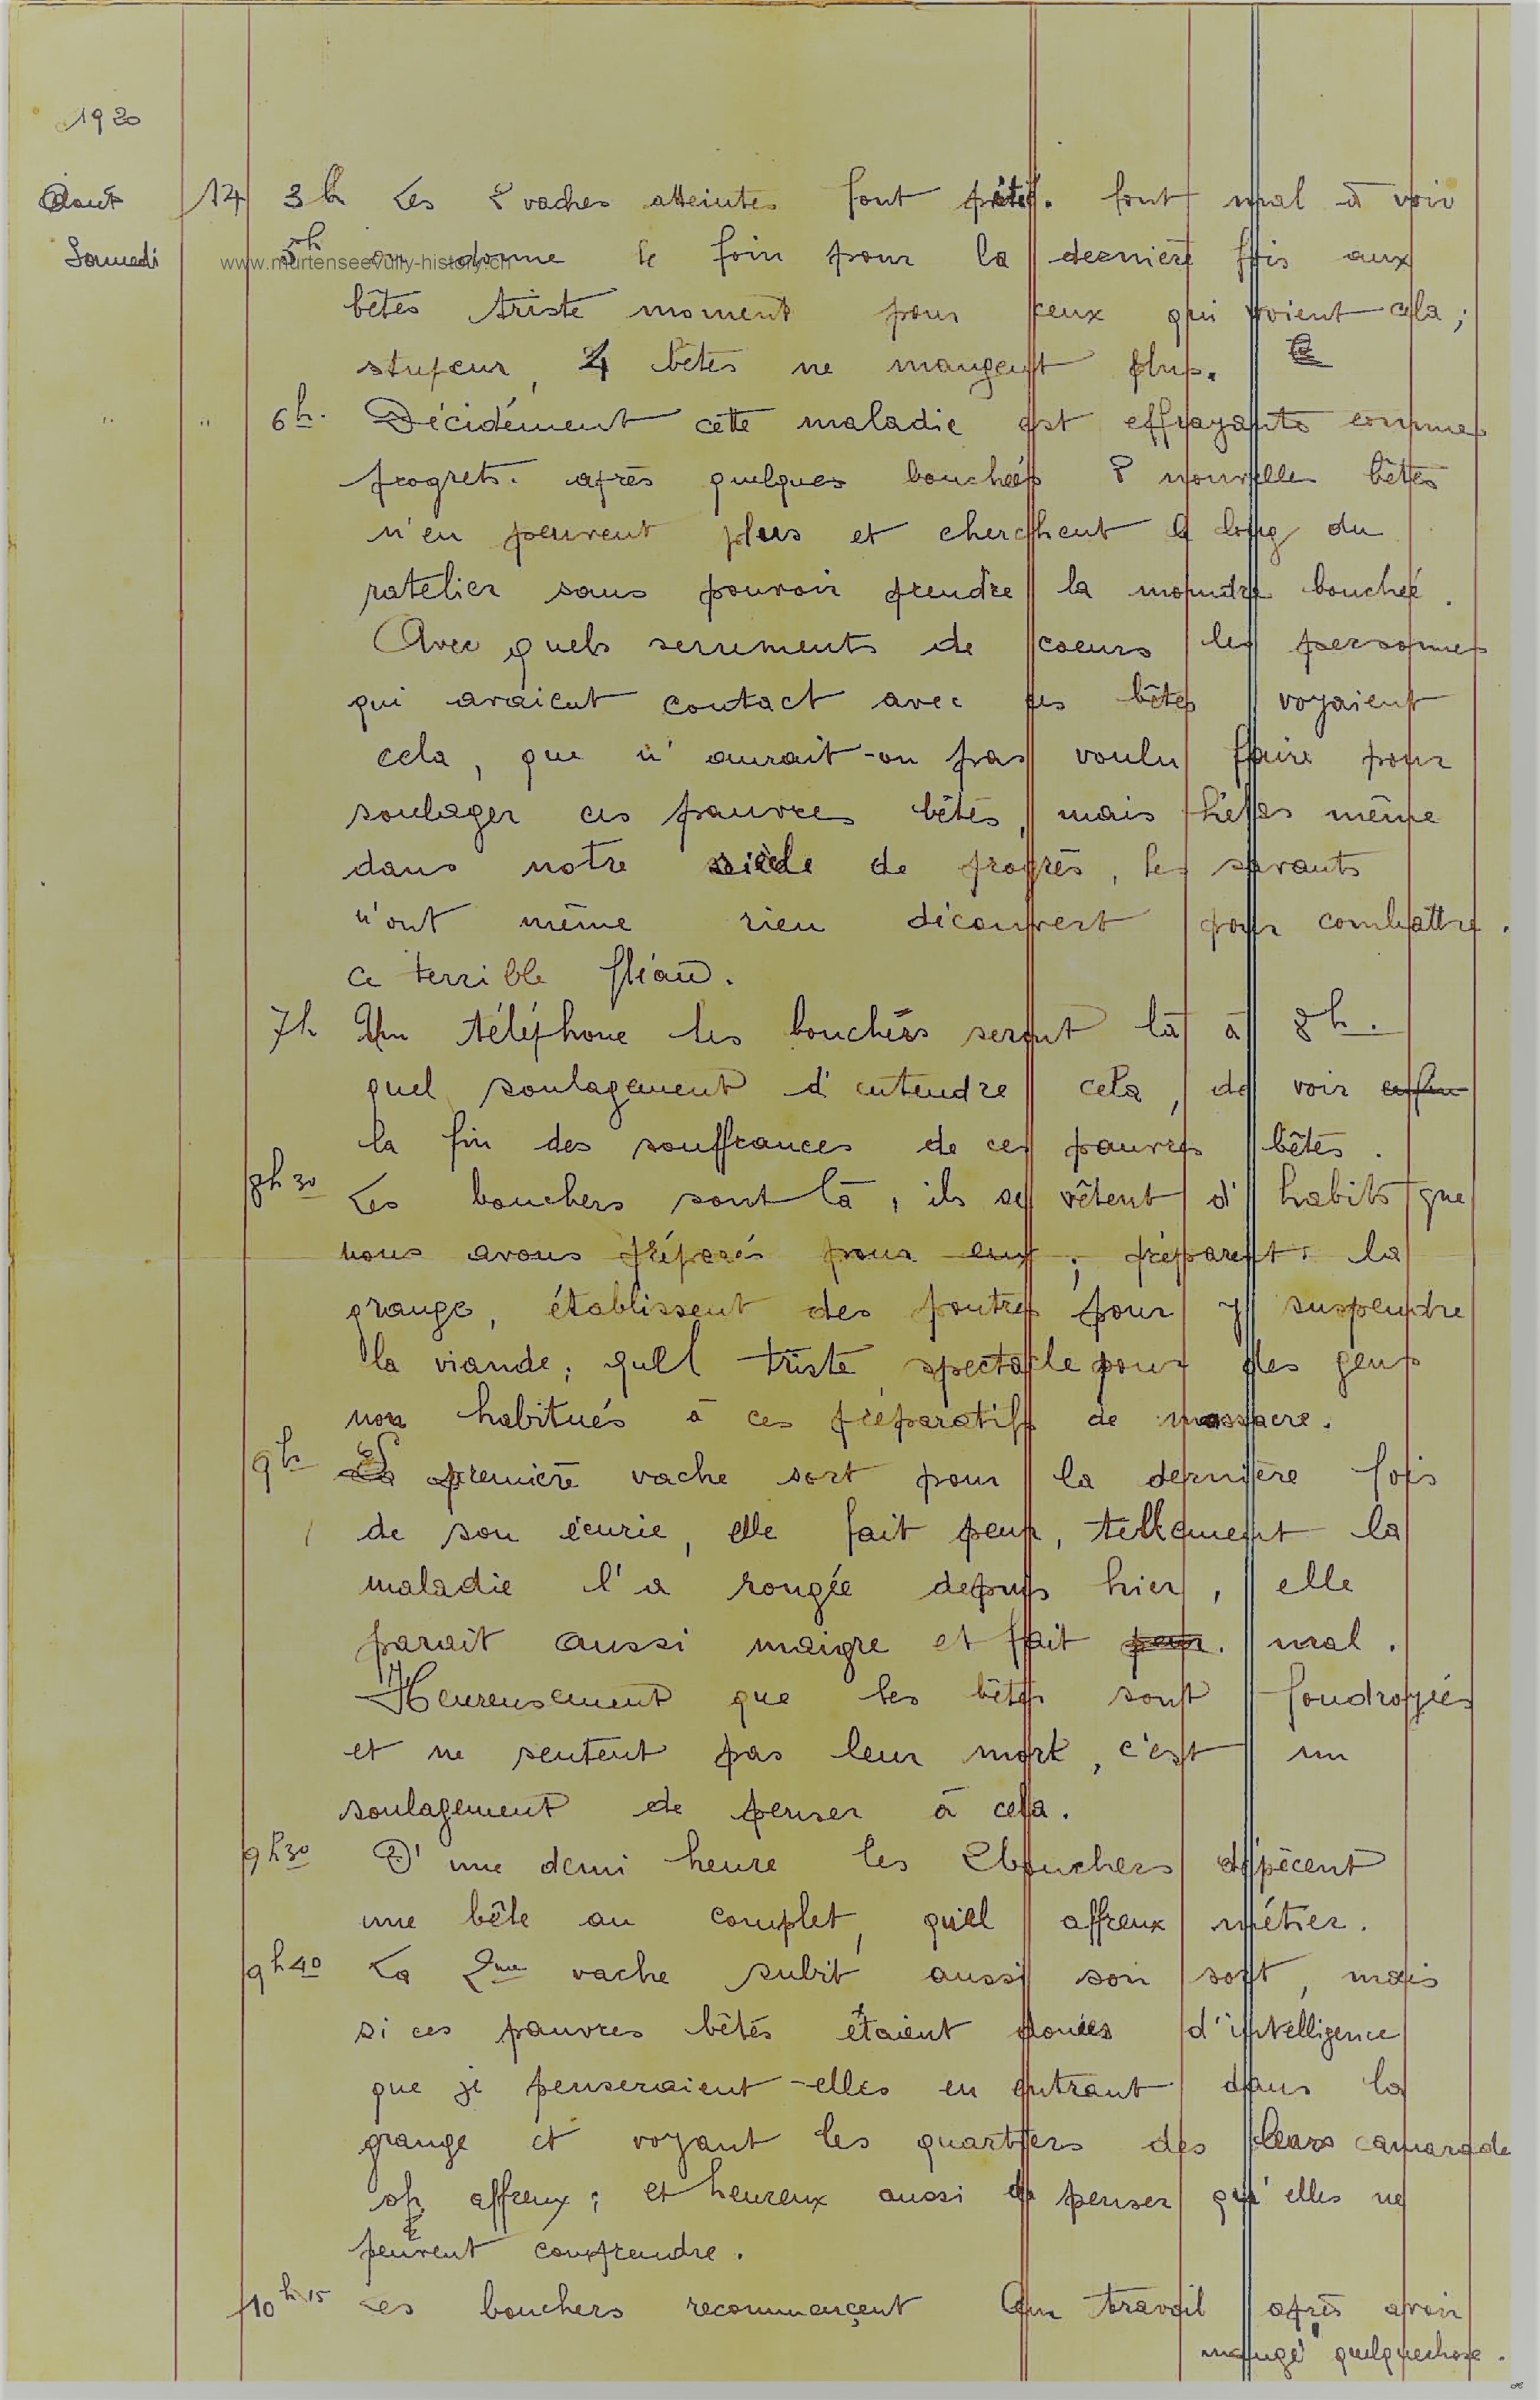 1920
Août 14 3h Les 2 vaches atteintes font pitié. font mal à voir
Samedi 5h on donne le foin pour la dernière fois aux
www.murtenseevully-history.ch
bêtes triste moment pour ceux qui voient cela ;
stupeur, 4 bêtes ne mangent plus.
" " 6h. Décidément cette maladie est effrayante comme
progrets. après quelques bouchées 8 nouvelles bêtes
n'en peuvent plus et cherchent le long du
ratelier sans pouvoir prendre la moindre bouchée.
Avec quels serrements de coeurs les personnes
qui avaient contact avec ces bêtes voyaient
cela, que n'aurait-on pas voulu faire pour
soulager ces pauvres bêtes, mais hélas même
dans notre siècle de progrès, les savants
n'ont même rien découvert pour combattre.
ce terrible fléau.
7h Un téléphone les bouchers seront là à 8h.
quel soulagement d'entendre cela, de voir enfin
la fin des souffrances de ces pauvres bêtes.
8h30 Les bouchers sont là, ils se vêtent d'habits que
nous avons préparés pour eux ; préparent la
grange, établissent des poutres pour y suspendre
la viande ; quel triste spectacle pour des gens
non habitués à ces préparatifs de massacre.
9h La première vache sort pour la dernière fois
de son écurie, elle fait peur, tellement la
maladie l'a rongée depuis hier, elle
parait aussi maigre et fait peur. mal.
Heureusement que les bêtes sont foudroyées
et ne sentent pas leur mort, c'est un
soulagement de penser à cela.
9h30 D'une demi heure les 2 bouchers dépècent
une bête au complet, quel affreux métier.
9h40 La 2me vache subit aussi son sort, mais
si ces pauvres bêtes étaient douées d'intelligence
que je penseraient-elles en entrant dans la
grange et voyant les quartiers des leurs camarade
oh affreux ; et heureux aussi de penser qu'elles ne
peuvent comprendre.
10h15 Les bouchers recommençent leur travail après avoir
mangé quelquechose.